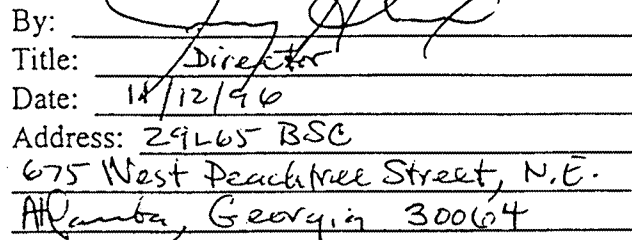 By:
Title: Director
Date: 11/12/96
Address: 29L65 BSC
675 West Peachtree Street, N.E.
Atlanta, Georgia 30064